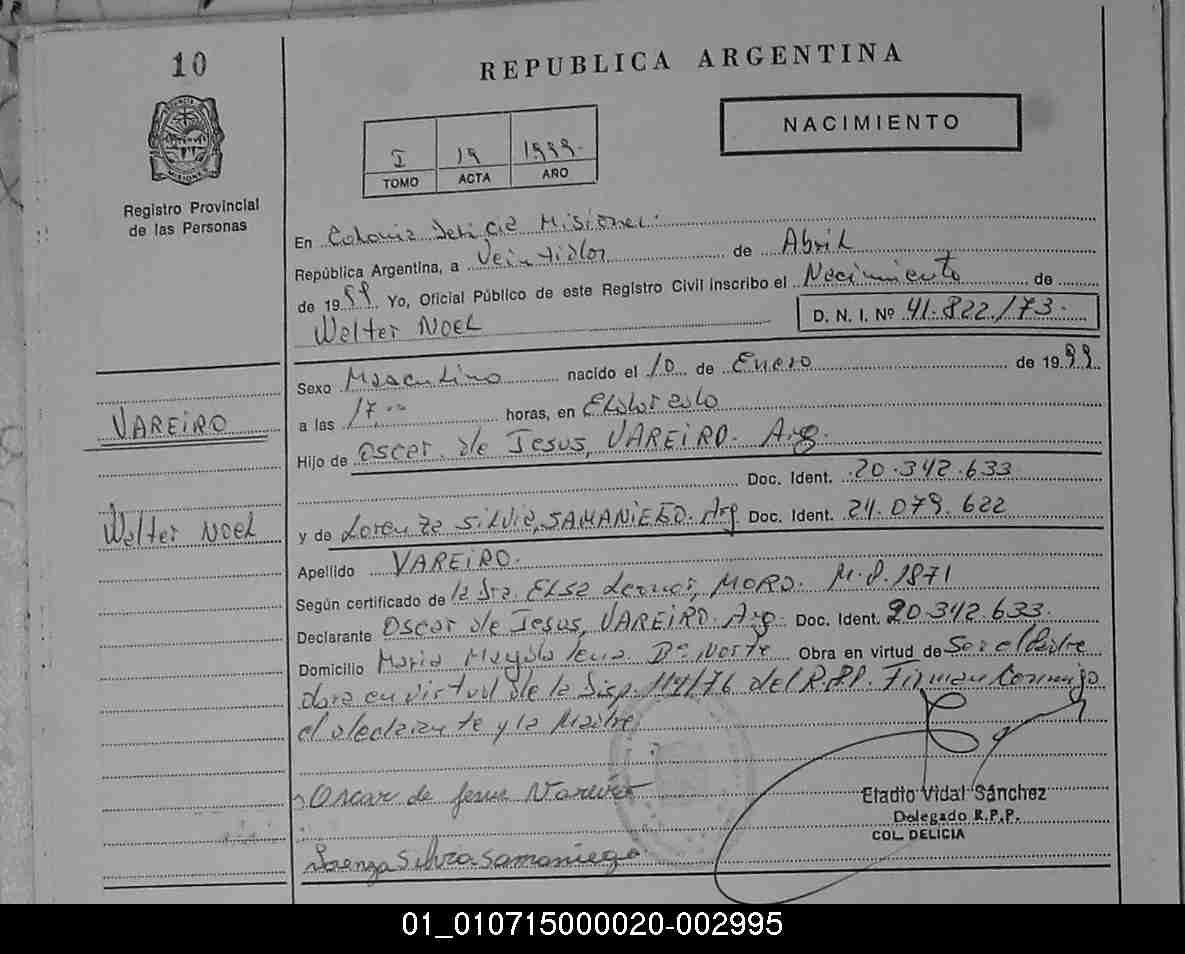 10
REPUBLICA ARGENTINA
NACIMIENTO
I 19 1999.
TOMO ACTA AÑO
Registro Provincial
de las Personas
En Colonia Delicia Misiones.
República Argentina, a Veintidos de Abril
de 1999. Yo, Oficial Público de este Registro Civil inscribo el Nacimiento de
Walter Noel D. N. I. Nº 41.822.173.
Sexo Masculino nacido el 10 de Enero de 1999
a las 17.00 horas, en Eldorado
VAREIRO
Hijo de Oscar de Jesus, VAREIRO. Arg.
Doc. Ident. 20.342.633
Walter Noel
y de Lorenza Silvia, SAMANIEGO. Arg Doc. Ident. 24.079.622
Apellido VAREIRO.
Según certificado de la Dra. Elsa Leonor, MORO. M.P.1871
Declarante Oscar de Jesus, VAREIRO. Arg. Doc. Ident. 20.342.633.
Domicilio Maria Magdalena. Bº Norte Obra en virtud de Ser el Padre
Obra en virtud de la Disp. 114/76 del R.P.P. Firman Conmigo
el declarante y la Madre.
Oscar de Jesus Vareiro
Eladio Vidal Sánchez
Delegado R.P.P.
COL. DELICIA
Lorenza Silvia Samaniego.
01_010715000020-002995